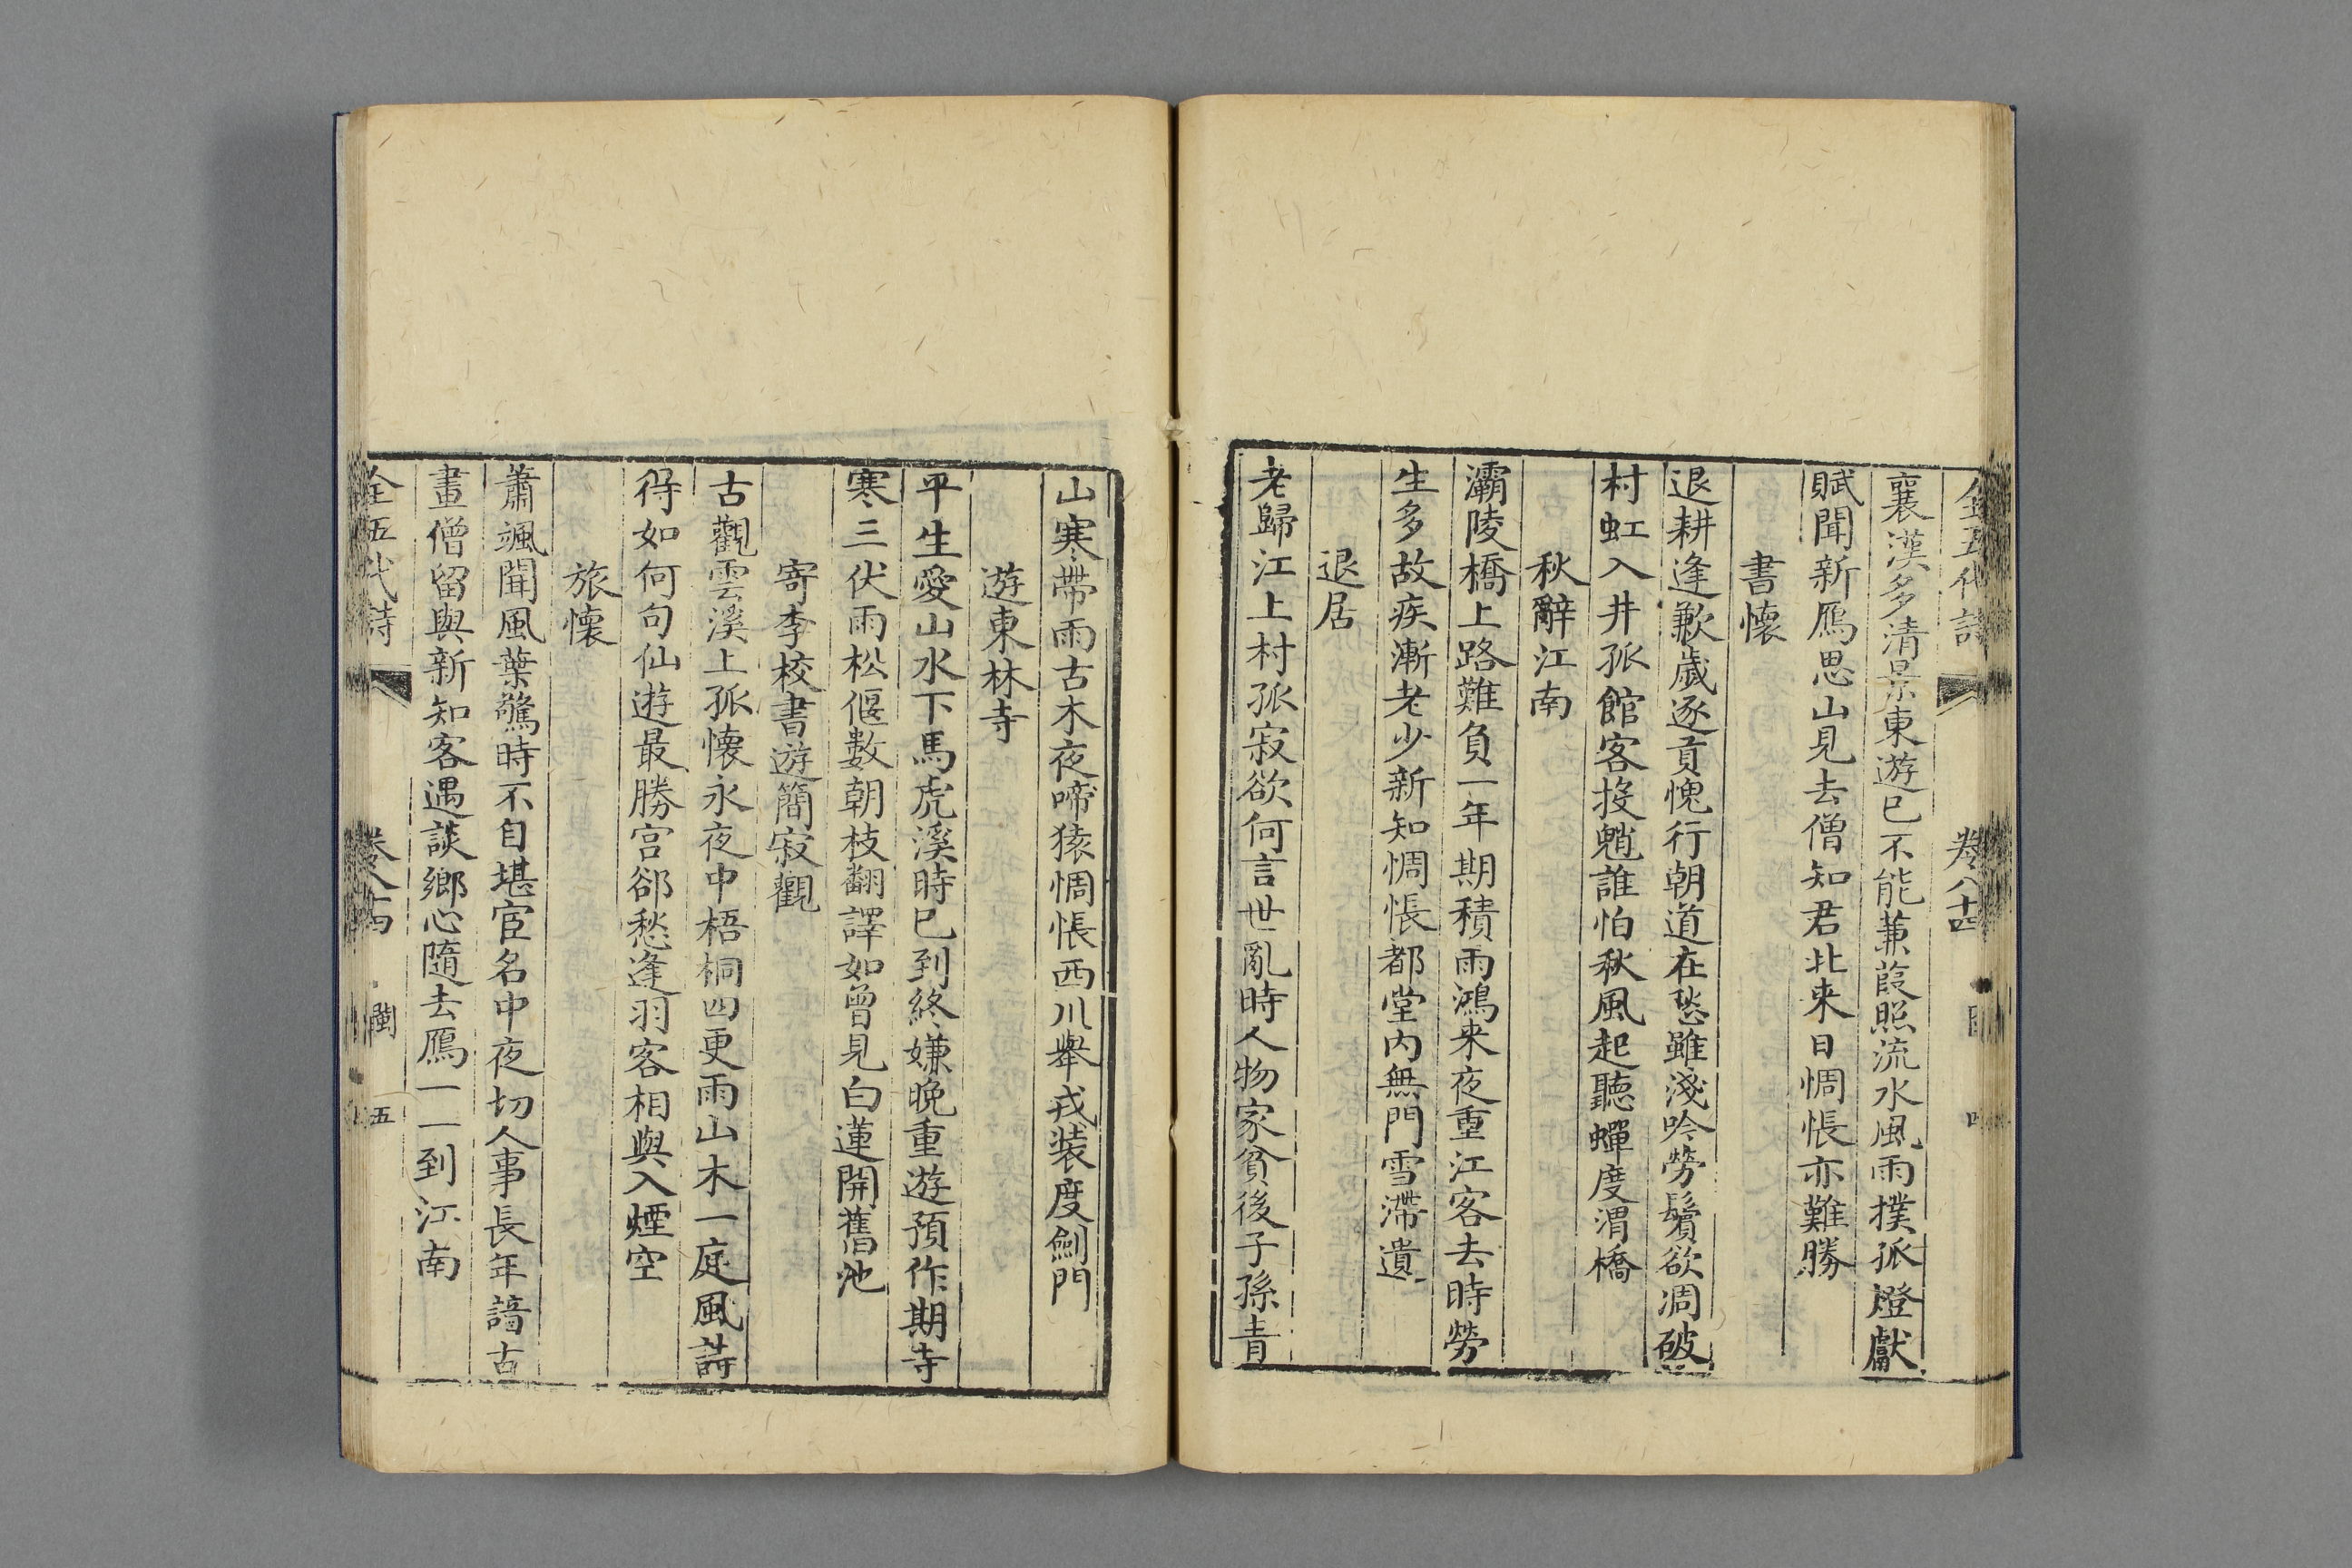 全五代詩 卷八十四
襄漢多清景東遊已不能蒹葭照流水風雨撲孤燈獻
賦聞新鴈思山見去僧知君北来日惆悵亦難勝
書懷
退耕逢歉歲逐貢愧行朝道在愁雖淺吟勞鬢欲凋破
村虹入井孤館客投魈誰怕秋風起聽蟬度渭橋
秋辭江南
灞陵橋上路難負一年期積雨鴻来夜重江客去時勞
生多故疾漸老少新知惆悵都堂内無門雪滯遺
退居
老歸江上村孤寂欲何言世亂時人物家貧後子孫青
山寒帶雨古木夜啼猿惆悵西川舉戎装度劍門
遊東林寺
平生愛山水下馬虎溪時已到終嫌晚重遊預作期寺
寒三伏雨松偃数朝枝翻譯如曾見白蓮開舊池
寄李校書遊簡寂觀
古觀雲溪上孤懷永夜中梧桐四更雨山木一庭風詩
得如何句仙遊最勝宫郤愁逢羽客相與入煙空
旅懷
蕭颯聞風葉驚時不自堪宦名中夜切人事長年諳古
畫僧留與新知客遇談鄉心隨去鴈一一到江南
全五代詩 卷八十四 閩 五